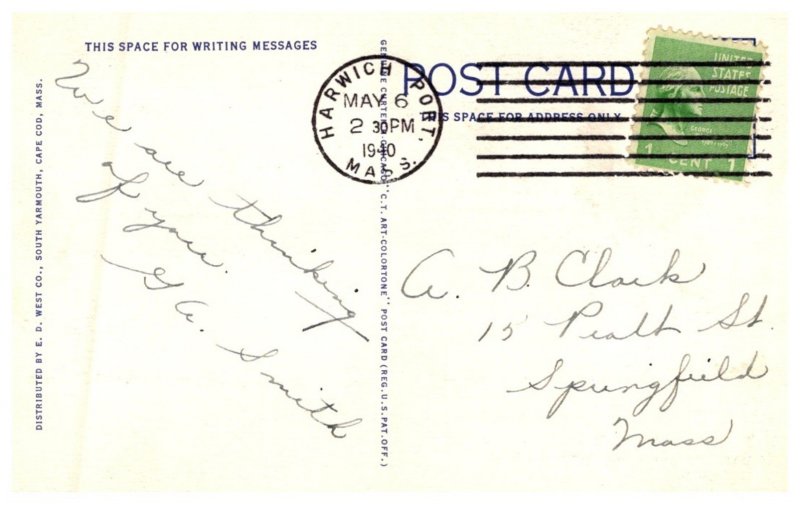 THIS SPACE FOR WRITING MESSAGES
We are thinking
of you.
G A. Smith
DISTRIBUTED BY E. D. WEST CO., SOUTH YARMOUTH, CAPE COD, MASS.
GENUINE CURTEICH-CHICAGO "C.T. ART-COLORTONE" POST CARD (REG. U.S. PAT. OFF.)
HARWICH PORT,
MAY 6
2 30 PM
1940
MASS.
POST CARD
THIS SPACE FOR ADDRESS ONLY
UNITED
STATES
POSTAGE
GEORGE
1 CENT 1
A. B. Clark
15 Pratt St.
Springfield
Mass